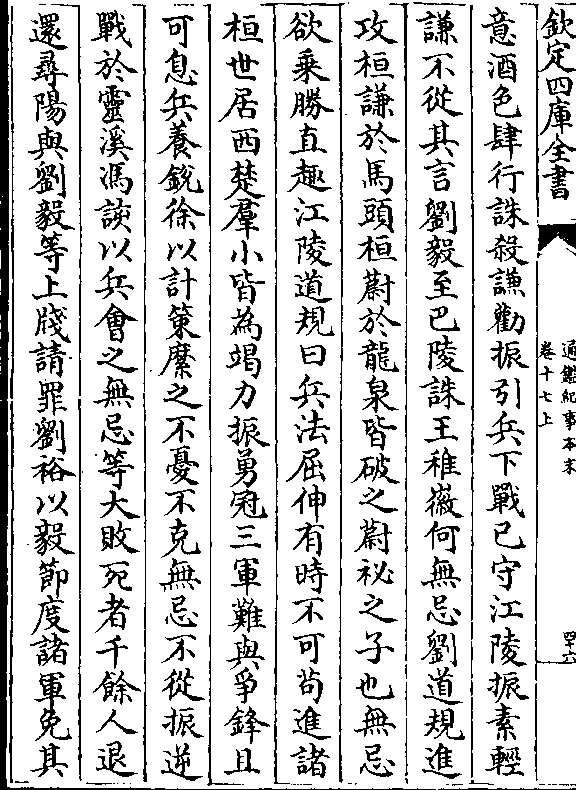 欽定四庫全書
通鑑紀事本末
卷十七上
四十六
意酒色肆行誅殺謙勸振引兵下戰已守江陵振素輕
謙不從其言劉毅至巴陵誅王稚徽何無忌劉道規進
攻桓謙於馬頭桓蔚於龍泉皆破之蔚祕之子也無忌
欲乗勝直趣江陵道規曰兵法屈伸有時不可茍進諸
桓世居西楚羣小皆為竭力振勇冠三軍難與爭鋒且
可息兵養銳徐以計策縻之不憂不克無忌不從振逆
戰於靈溪馮該以兵會之無忌等大敗死者千餘人退
還尋陽與劉毅等上牋請罪劉裕以毅節度諸軍免其